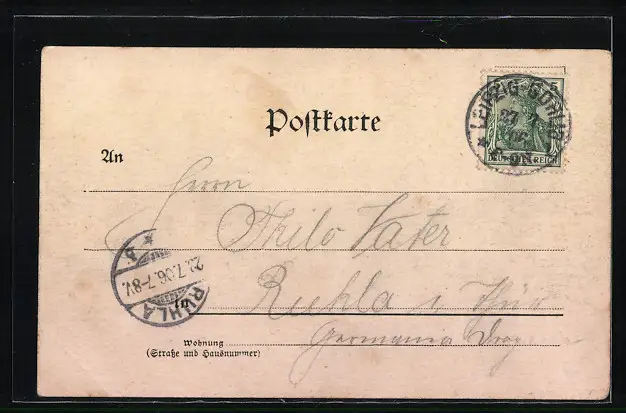 Postkarte
LEIPZIG-GOHLIS
27
5
DEUTSCHES REICH
An
Herrn
Thilo Vater
* b
7.06.7-8V.
RUHLA
in
Ruhla i Thür
Wohnung
(Straße und Hausnummer)
Germania Drog